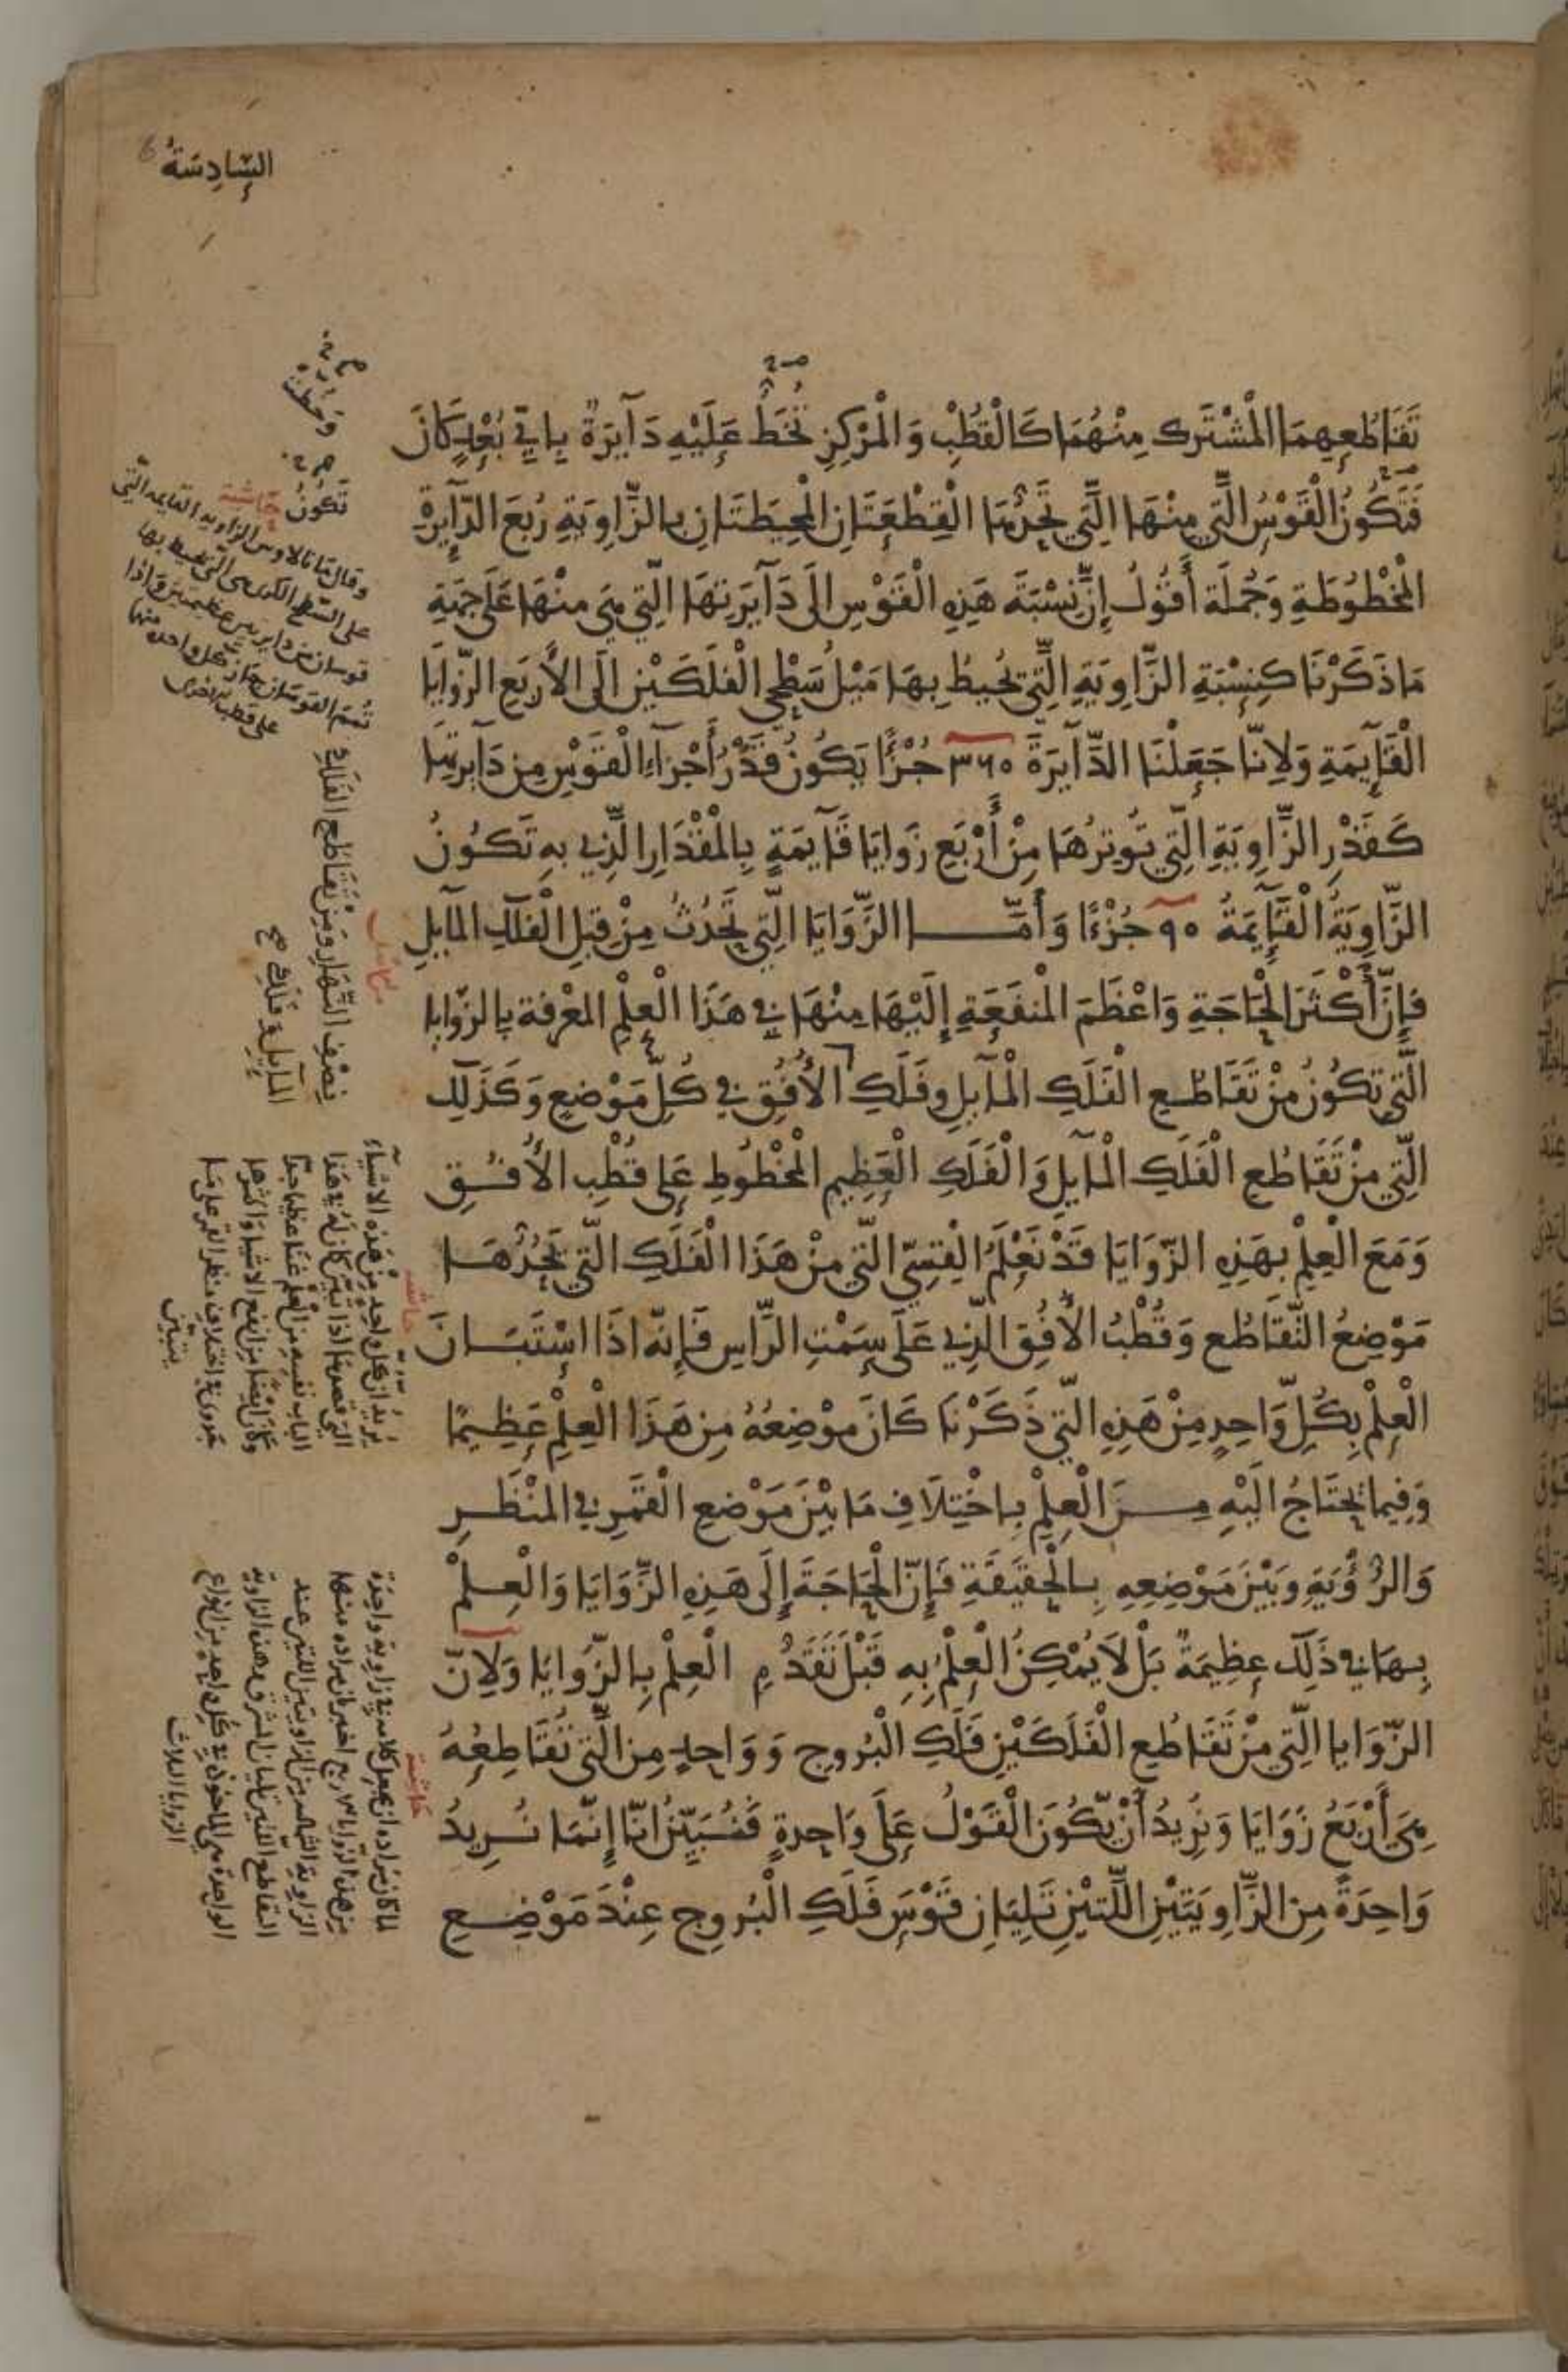 السَّادِسَةُ
تَقَاطُعِهِمَا الْمُشْتَرَك مِنْهُمَا كَالْقُطْبِ وَالْمَرْكِزِ تُخَطُّ عَلَيْهِ دَآيرَةٌ بِايِّ بُعْدٍ كَانَ
فَتَكُونُ الْقَوْسُ الَّتي مِنْهَا الَّتِي تَحُدُّهَا الْقِطْعَتَانِ الْمُحِيطَتَانِ بِالزَّاوِيَةِ رُبَعَ الدَّآيِرَةِ
الْمَخْطُوطَةِ وَجُمْلَة أَقُولُ إِنَّ نِسْبَةَ هَذِهِ الْقَوْسِ الَى دَآيَرِتهَا الَّتِي هِيَ مِنْهَا عَلَى جِهَةِ
مَا ذَكَرْنَا كَنِسْبَةِ الزَّاوِيَةِ الَّتِي يُحِيطُ بِهَا مَيْلُ سَطْحَي الْفَلَكَيْنِ الَى الأَرْبَعِ الزَّوَايَا
الْقَآيِمَةِ وَلِانَّا جَعَلْنَا الدَّآيرَةَ ٣٦٠ جُزْءًا يَكُونُ قَدْرُ أَجْزَاءِ الْقَوْسِ مِن دَآيرتِهَا
كَقَدْرِ الزَّاوِيَةِ الَّتِي تُوتِرُهَا مِنْ أَرْبَعِ زَوَايَا قَآيِمَةٍ بِالْمِقْدَارِ الَّذِي بِهِ تَكُونُ
الزَّاوِيَةُ الْقَآيِمَةُ ٩٠ جُزْءًا وَأَمَّا الزَّوَايَا الَّتِي تَحْدُثُ مِنْ قِبَلِ الْفَلَكِ الْمَآيِلِ
فَإِنَّ أَكْثَرَ الْحَاجَةِ وَاعْظَمَ الْمَنفَعَةِ إِلَيْهَا مِنْهَا فِي هَذَا الْعِلْمِ الْمَعْرِفَة بِالزَّوَايا
الَّتي تَكُونُ مِنْ تَقَاطُعِ الْفَلَكِ الْمَآيلِ وَفَلَكِ الأُفُقِ في كُلِّ مَوْضِعٍ وَكَذَلِك
الَّتِي مِنْ تَقَاطُعِ الْفَلَكِ الْمَآيلِ وَالْفَلَكِ الْعَظِيمِ الْمَخْطُوطِ عَلى قُطْبِ الأُفُقِ
وَمَعَ الْعِلْمِ بهَذِهِ الزَّوَايَا قَدْ نَعْلَمُ الْقِسِيَّ الَّتي مِنْ هَذَا الْفَلَكِ الَّتي يَحُدُّهَا
مَوْضِعُ التَّقَاطُع وَقُطْبُ الأُفُقِ الَّذِي عَلَى سِمْتِ الرَّاسِ فَإِنَّه اذَا اسْتَبَانَ
الْعِلْمُ بِكُلِّ وَاحِدٍ مِنْ هَذِهِ الَّتي ذَكَرْنَا كَانَ مَوْضِعُهُ مِن هَذَا الْعِلْمِ عَظِيمًا
وَفِيمَا يُحْتَاجُ الَيْهِ مِنَ الْعِلْمِ بِاخْتِلَافِ مَا بَيْنَ مَوْضعِ الْقَمَرِ في الْمَنْظَرِ
وَالرُّؤْيَةِ وَبَيْنَ مَوْضِعِهِ بِالْحَقِيقَةِ فَإِنَّ الْحَاجَةَ إِلَى هَذِهِ الزَّوَايَا وَالْعِلْمُ
بِهَا في ذَلِكَ عِظِيمَةٌ بَلْ لَا يُمْكِنُ الْعِلْمُ بِهِ قَبْلَ تَقَدُّمِ الْعِلْمِ بِالزَّوايَا وَلِانَّ
الزَّوَايا الَّتي مِنْ تَقَاطُعِ الْفَلَكَيْنِ فَلَكِ الْبُروجِ وَوَاحِدٍ مِنَ الَّتي تُقَاطِعُهُ
هِيَ أَرْبَعُ زَوَايَا وَنُرِيدُ أَنْ يَكُونَ الْقَوْلُ عَلَى وَاحِدةٍ فَنُبَيِّنُ انَّا إِنَّمَا نُرِيدُ
وَاحِدَةً مِنَ الزَّاوِيَتَيْنِ اللَّتيْنِ تَلِيَانِ قَوْسَ فَلَكِ الْبُروجِ عِنْدَ مَوْضِعِ
تكونُ
حاشية
وقال مانالاوس الزاوية القايمة التي
على السطح الكرى هي التي تحيط بها
قوسان من دايرتين عظيمتين
نِصْفِ النَّهَارِ وَمِنْ تَقَاطُعِ الفَلَكِ
المآيلِ وَ فَلَكِ صح
حاشية
يُريدُ ان كل واحد مِنْ هَذِه الاشيآءِ
حاشية
الزوايا الثلاث